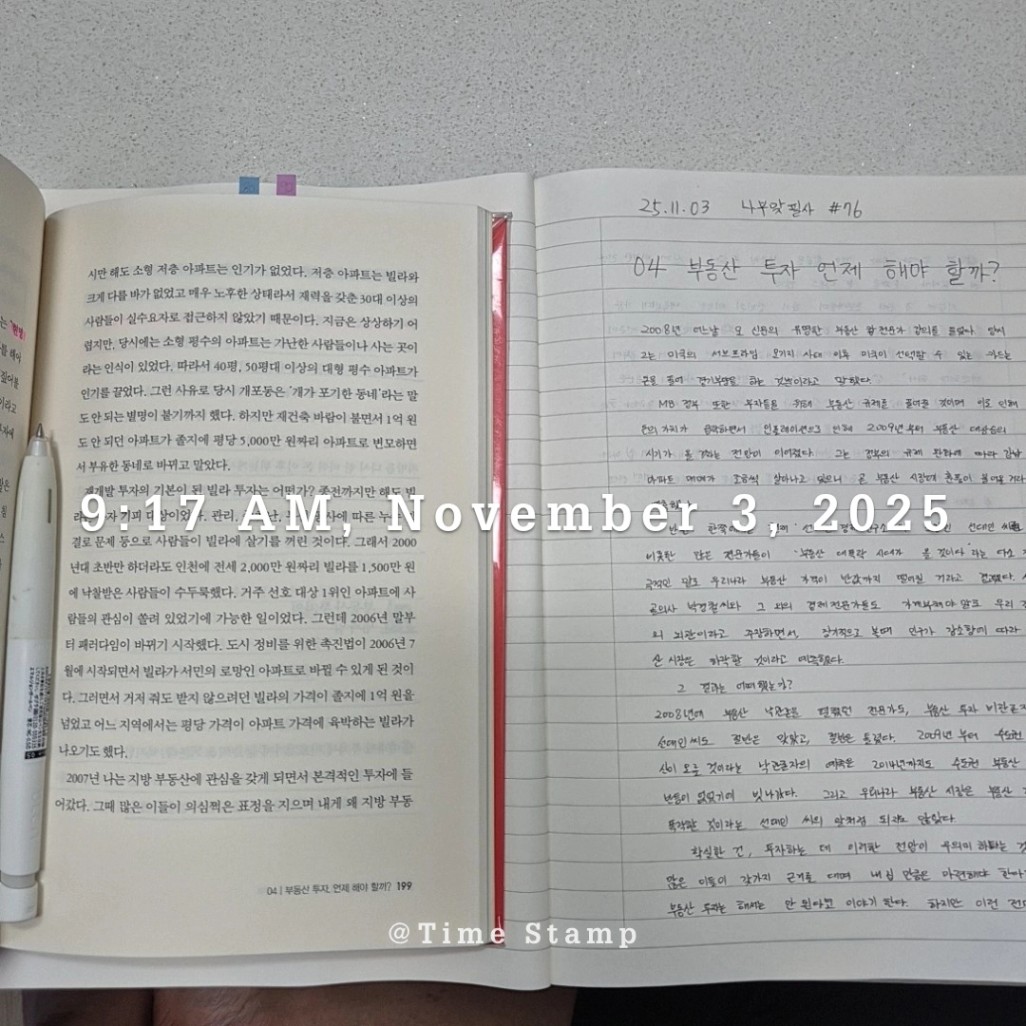 시만 해도 소형 저층 아파트는 인기가 없었다. 저층 아파트는 빌라와
크게 다를 바가 없었고 매우 노후한 상태라서 재력을 갖춘 30대 이상의
사람들이 실수요자로 접근하지 않았기 때문이다. 지금은 상상하기 어
렵지만, 당시에는 소형 평수의 아파트는 가난한 사람들이나 사는 곳이
라는 인식이 있었다. 따라서 40평, 50평대 이상의 대형 평수 아파트가
인기를 끌었다. 그런 사유로 당시 개포동은 '개가 포기한 동네'라는 말
도 안 되는 별명이 붙기까지 했다. 하지만 재건축 바람이 불면서 1억 원
도 안 되던 아파트가 졸지에 평당 5,000만 원짜리 아파트로 변모하면
서 부유한 동네로 바뀌고 말았다.
재개발 투자의 기본이 된 빌라 투자는 어떨가? 종전까지만 해도 빌
9:17 AM, November 3, 2025
결로 문제 등으로 사람들이 빌라에 살기를 꺼린 것이다. 그래서 2000
년대 초반만 하더라도 인천에 전세 2,000만 원짜리 빌라를 1,500만 원
에 낙찰받은 사람들이 수두룩했다. 거주 선호 대상 1위인 아파트에 사
람들의 관심이 쏠려 있었기에 가능한 일이었다. 그런데 2006년 말부
터 패러다임이 바뀌기 시작했다. 도시 정비를 위한 촉진법이 2006년 7
월에 시작되면서 빌라가 서민의 로망인 아파트로 바뀔 수 있게 된 것이
다. 그러면서 거저 줘도 받지 않으려던 빌라의 가격이 졸지에 1억 원을
넘었고 어느 지역에서는 평당 가격이 아파트 가격에 육박하는 빌라가
나오기도 했다.
2007년 나는 지방 부동산에 관심을 갖게 되면서 본격적인 투자에 들
어갔다. 그때 많은 이들이 의심찍은 표정을 지으며 내게 왜 지방 부동
04 | 부동산 투자, 언제 해야 할까? 199
25.11.03 나부맞필사 #76
04 부동산 투자 언제 해야 할까?
2008년 어느날 오 신문의 유명한 부동산
그는 미국의 서브프라임 모기지 사태 이후 미국이 선택할 수 있는 카드는
돈을 풀어 경기부양을 하는 것뿐이라고 말했다.
MB 정부 또한 부자들을 위해 부동산 규제를 풀어줄 것이며 이로 인해
돈의 가치가 하락하면서 인플레이션으로 인해 2009년부터 부동산 대상승의
시기가 올 거라는 전망이 이어졌다. 그는 정부의 규제 완화에 따라 강남
아파트 매매가 조금씩 살아나고 있으니 곧 부동산 시장에 훈풍이 불어올 거라
비슷한 많은 전문가들이 '부동산 대폭락 시대가 올 것이다'라는 다소
극적인 말로 우리나라 부동산 가격이 반값까지 떨어질 거라고 했다.
골의사 박경철씨와 그 외의 경제전문가들도 가계부채야말로 우리
의 뇌관이라고 주장하면서, 장기적으로 볼때 인구가 감소함에 따라
산 시장은 하락할 것이라고 예측했다.
그 결과는 어떠했는가?
2008년에 부동산 낙관론을 펼쳤던 전문가도, 부동산 투자 비관론자
선대인씨도 절반은 맞았고, 절반은 틀렸다. 2009년부터 수도권
산이 오를 것이라는 낙관론자의 예측은 2014년까지도 수도권 부동산
반등이 없었기에 빗나갔다. 그리고 우리나라 부동산 시장은 부동산
폭락할 것이라는 선대인 씨의 말처럼 되지도 않았다.
확실한 건, 투자하는 데 이러한 전망이 무의미하다는
많은 이들이 갖가지 근거를 대며 내 집 만큼은 마련해야 한다
부동산 투자는 해서는 안 된다고 이야기 한다. 하지만 이런
@Time Stamp